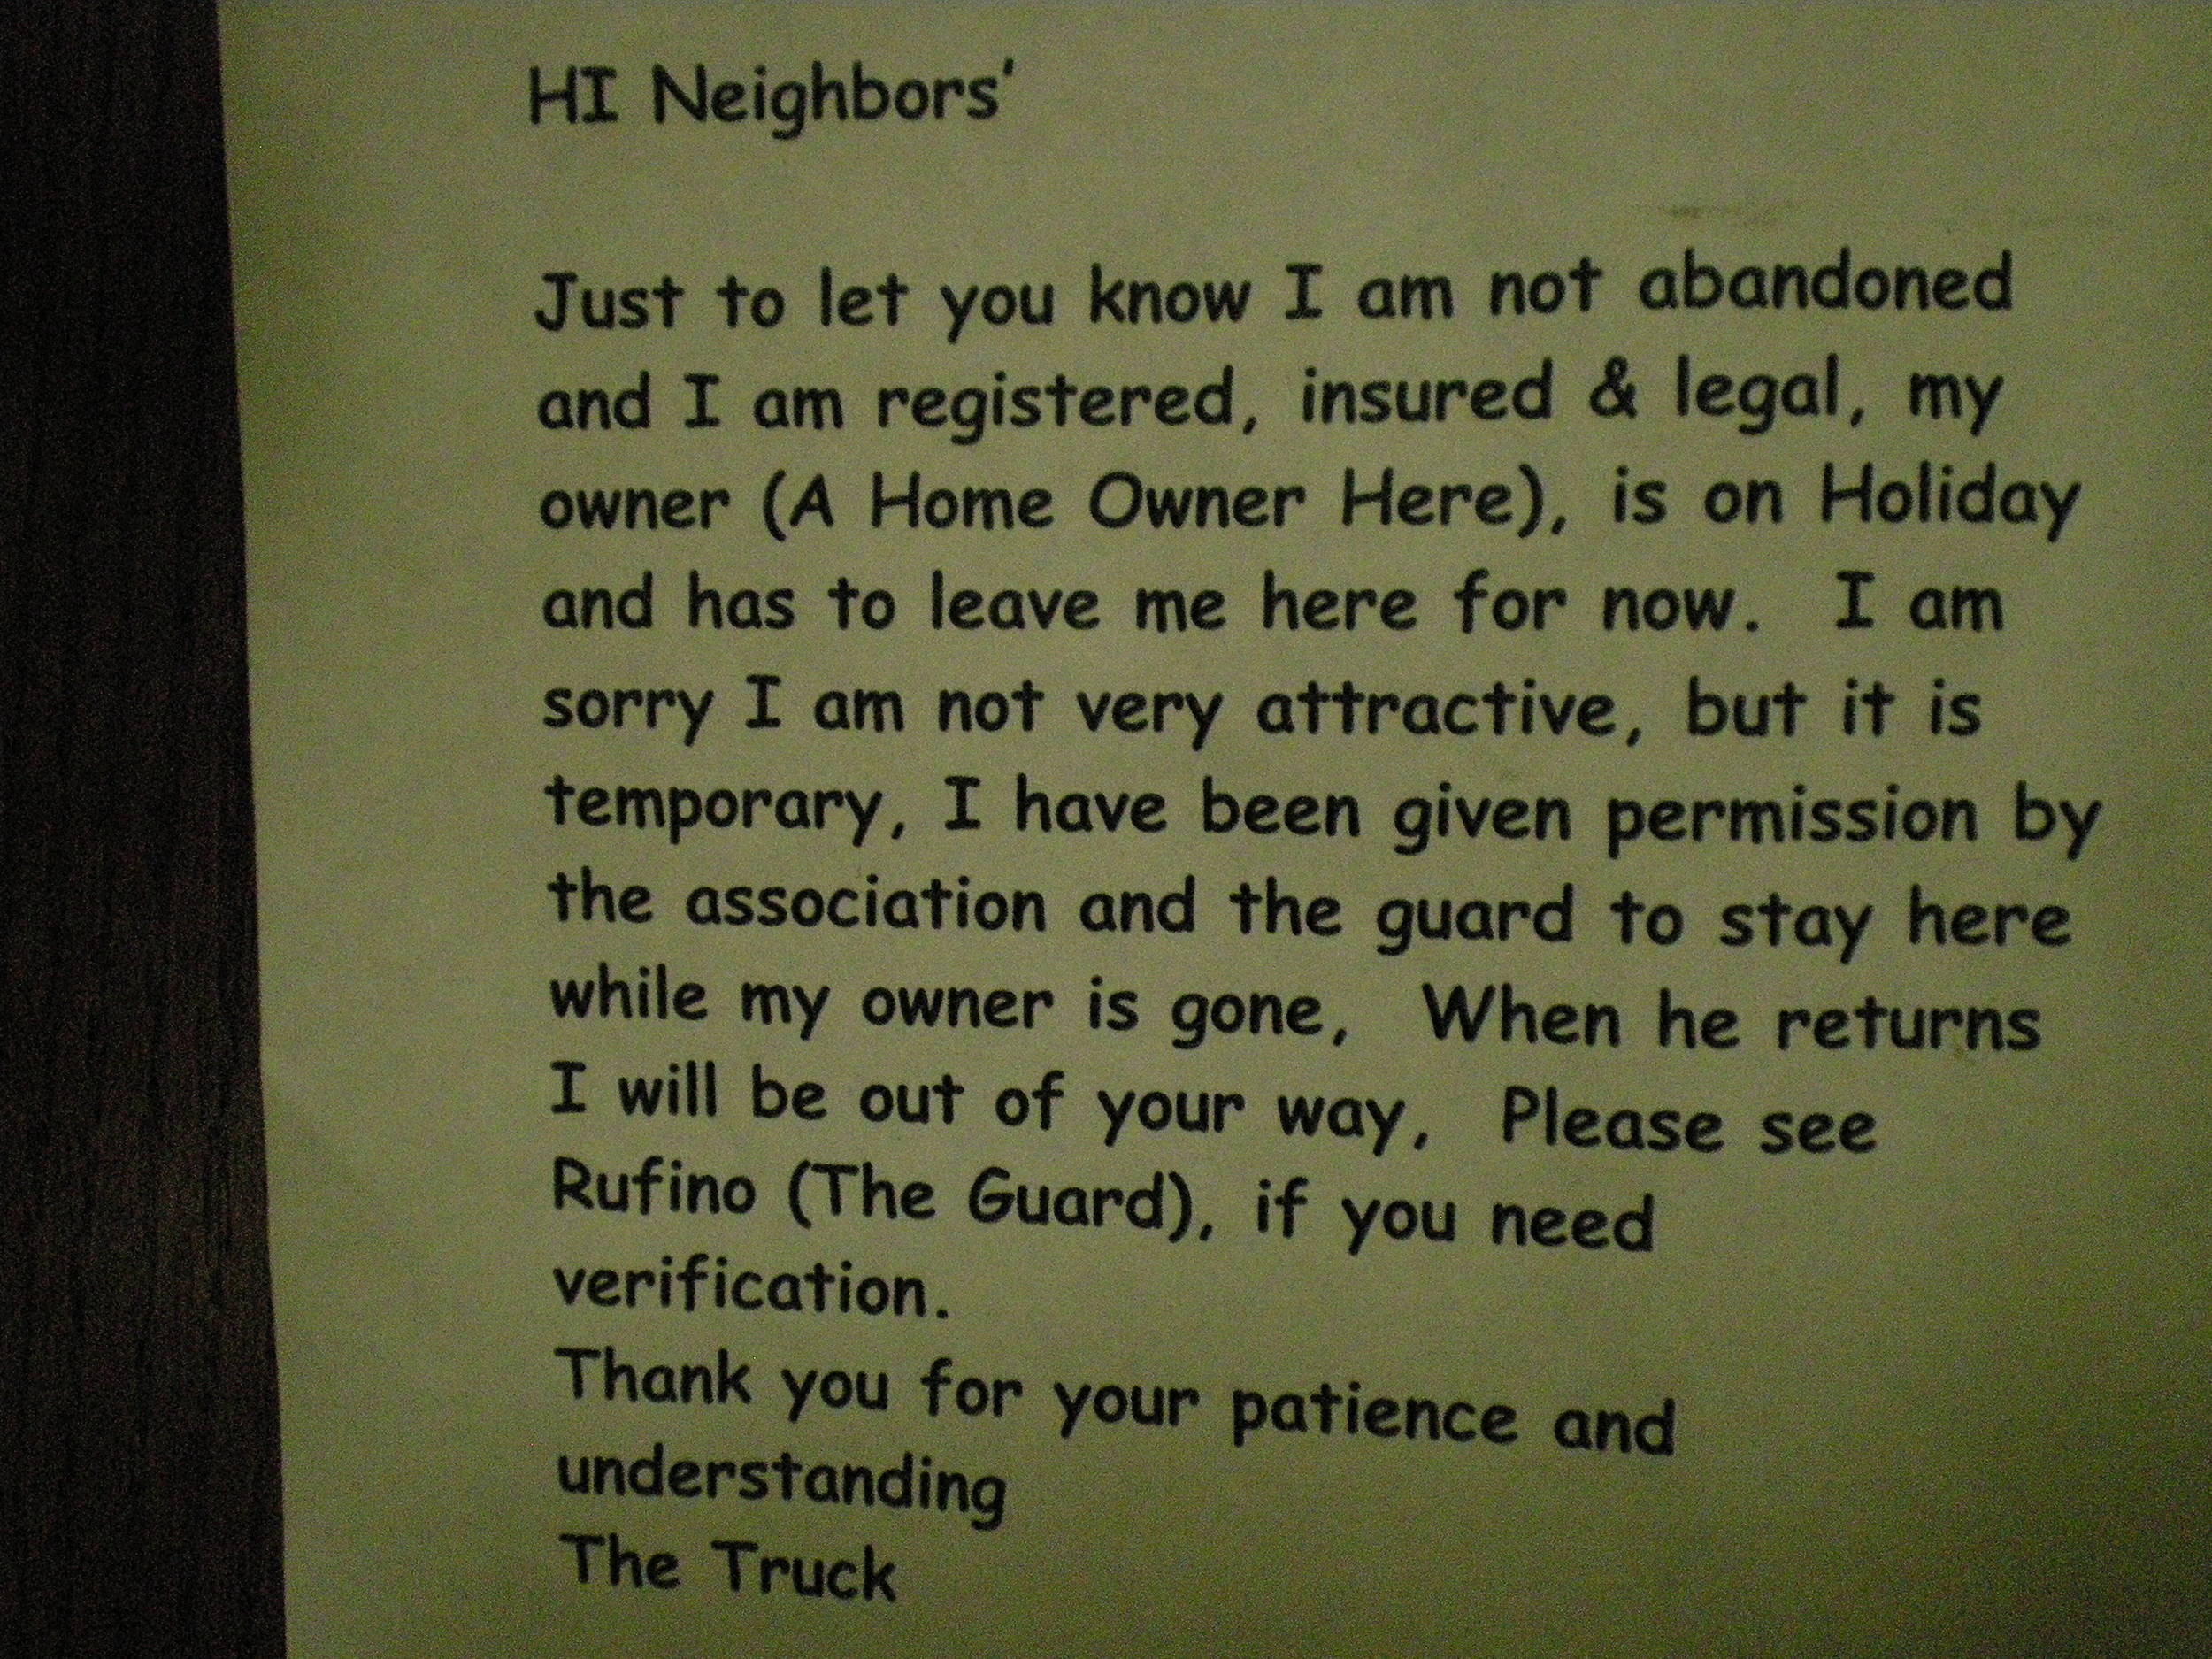 HI Neighbors'
Just to let you know I am not abandoned
and I am registered, insured & legal, my
owner (A Home Owner Here), is on Holiday
and has to leave me here for now.  I am
sorry I am not very attractive, but it is
temporary, I have been given permission by
the association and the guard to stay here
while my owner is gone,  When he returns
I will be out of your way,  Please see
Rufino (The Guard), if you need
verification.
Thank you for your patience and
understanding
The Truck